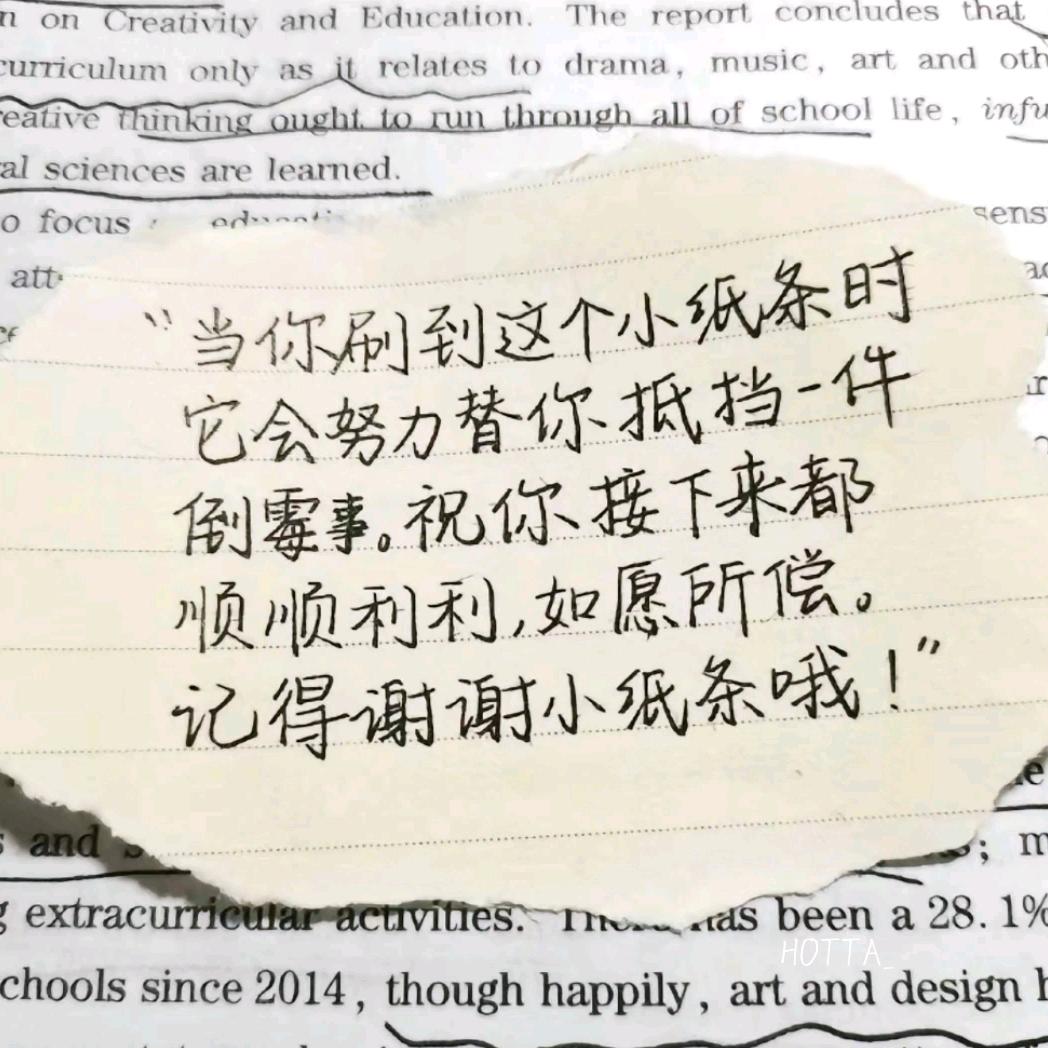 n on Creativity and Education. The report concludes that
curriculum only as it relates to drama, music, art and oth
reative thinking ought to run through all of school life, infu
al sciences are learned.
o focus
sens
att
“当你刷到这个小纸条时
它会努力替你抵挡一件
倒霉事。祝你接下来都
顺顺利利,如愿所偿。
记得谢谢小纸条哦!”
and
; m
g extracurricular activities. There has been a 28.1%
HOTTA_
chools since 2014, though happily, art and design h